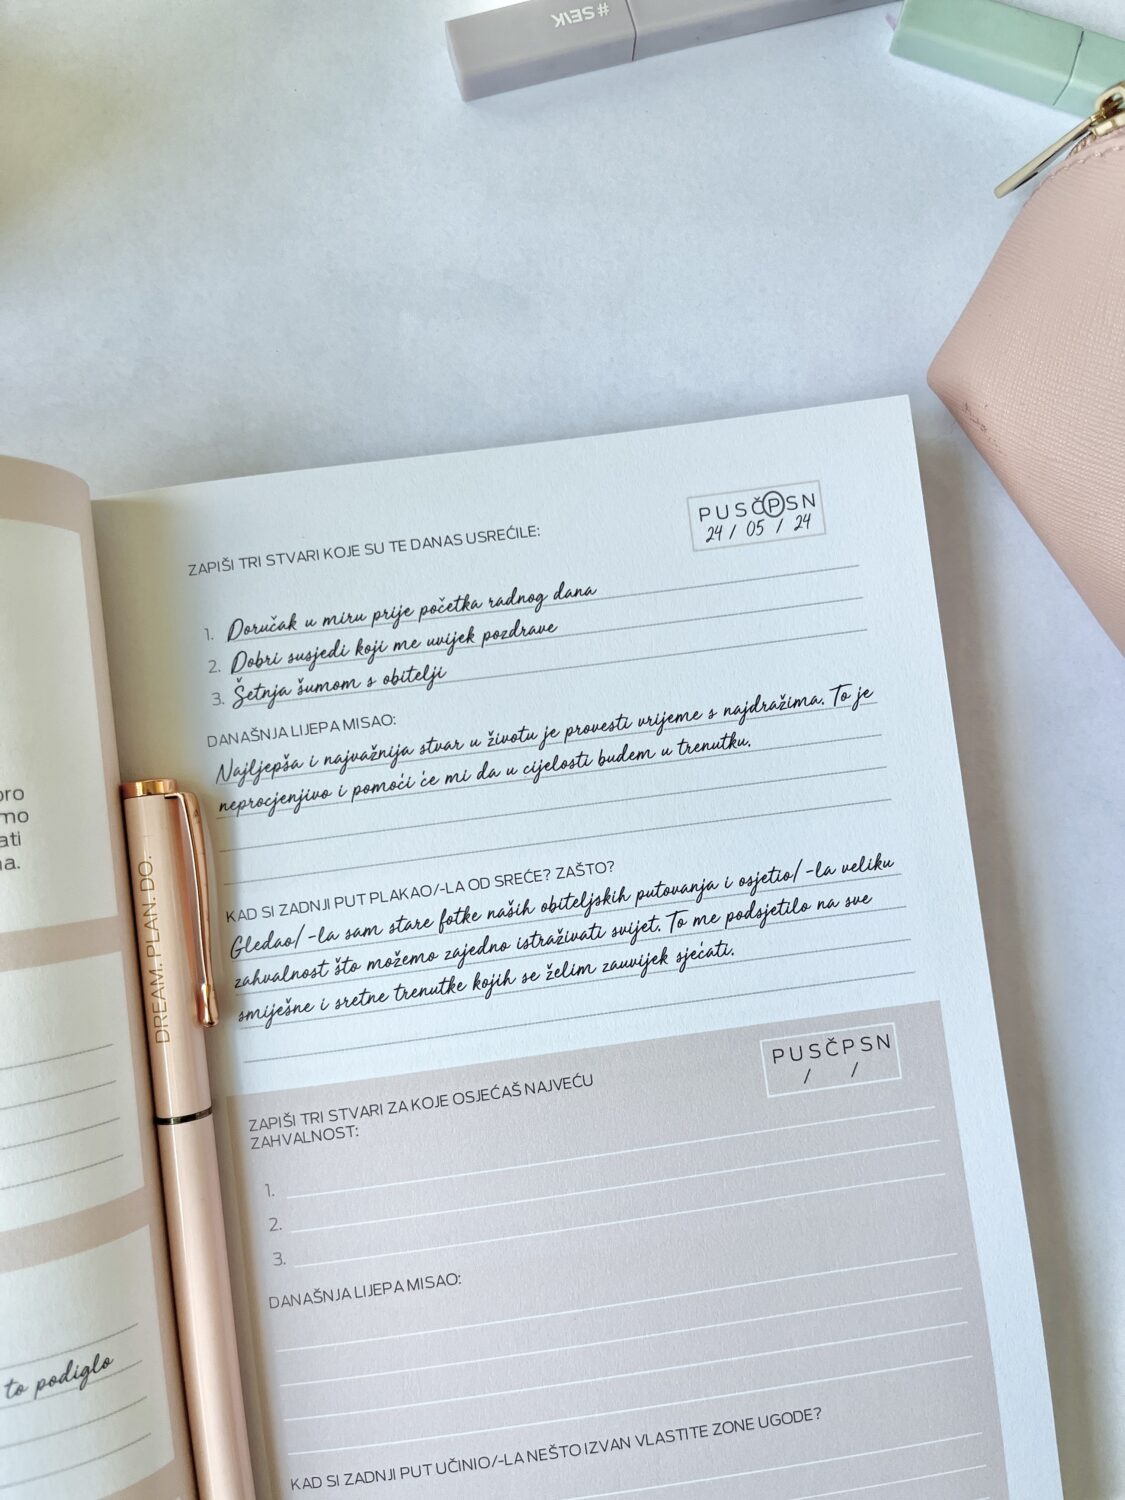 #SEIK
PUSČPSN
24 / 05 / 24
ZAPIŠI TRI STVARI KOJE SU TE DANAS USREĆILE:
1. Doručak u miru prije početka radnog dana
2. Dobri susjedi koji me uvijek pozdrave
3. Šetnja šumom s obitelji
DANAŠNJA LIJEPA MISAO:
Najljepša i najvažnija stvar u životu je provesti vrijeme s najdražima. To je
neprocjenjivo i pomoći će mi da u cijelosti budem u trenutku.
KAD SI ZADNJI PUT PLAKAO/-LA OD SREĆE? ZAŠTO?
Gledao/-la sam stare fotke naših obiteljskih putovanja i osjetio/-la veliku
zahvalnost što možemo zajedno istraživati svijet. To me podsjetilo na sve
smiješne i sretne trenutke kojih se želim zauvijek sjećati.
PUSČPSN
/ /
ZAPIŠI TRI STVARI ZA KOJE OSJEĆAŠ NAJVEĆU
ZAHVALNOST:
1.
2.
3.
DANAŠNJA LIJEPA MISAO:
KAD SI ZADNJI PUT UČINIO/-LA NEŠTO IZVAN VLASTITE ZONE UGODE?
DREAM. PLAN. DO.
to podiglo